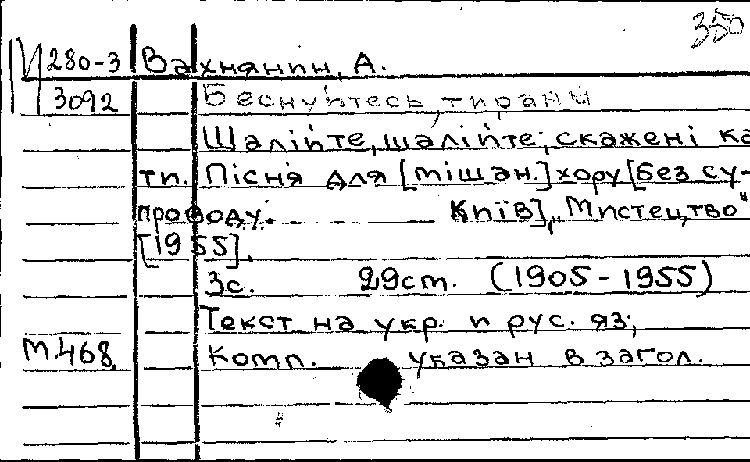 350
И 280-3 Вахнянин, А.
3092 Беснуйтесь, тираны
Шалійте, шалійте, скажені ка
ти. Пісня для [мішан.] хору [без су-
проводу. Київ], „Мистецтво"
[1955].
3с. 29см. (1905-1955)
Текст на укр. и рус. яз;
М.468 Комп. указан в загол.